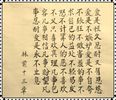 愛是恆久忍耐又有恩慈
愛是不嫉妒愛是不自誇
不張狂不做害羞的事不
求自己的益處不輕易發
怒不計算人的惡不喜歡
不義只喜歡真理凡事包
容凡事相信凡事盼望凡
事忍耐愛是永不止息
林前十三章